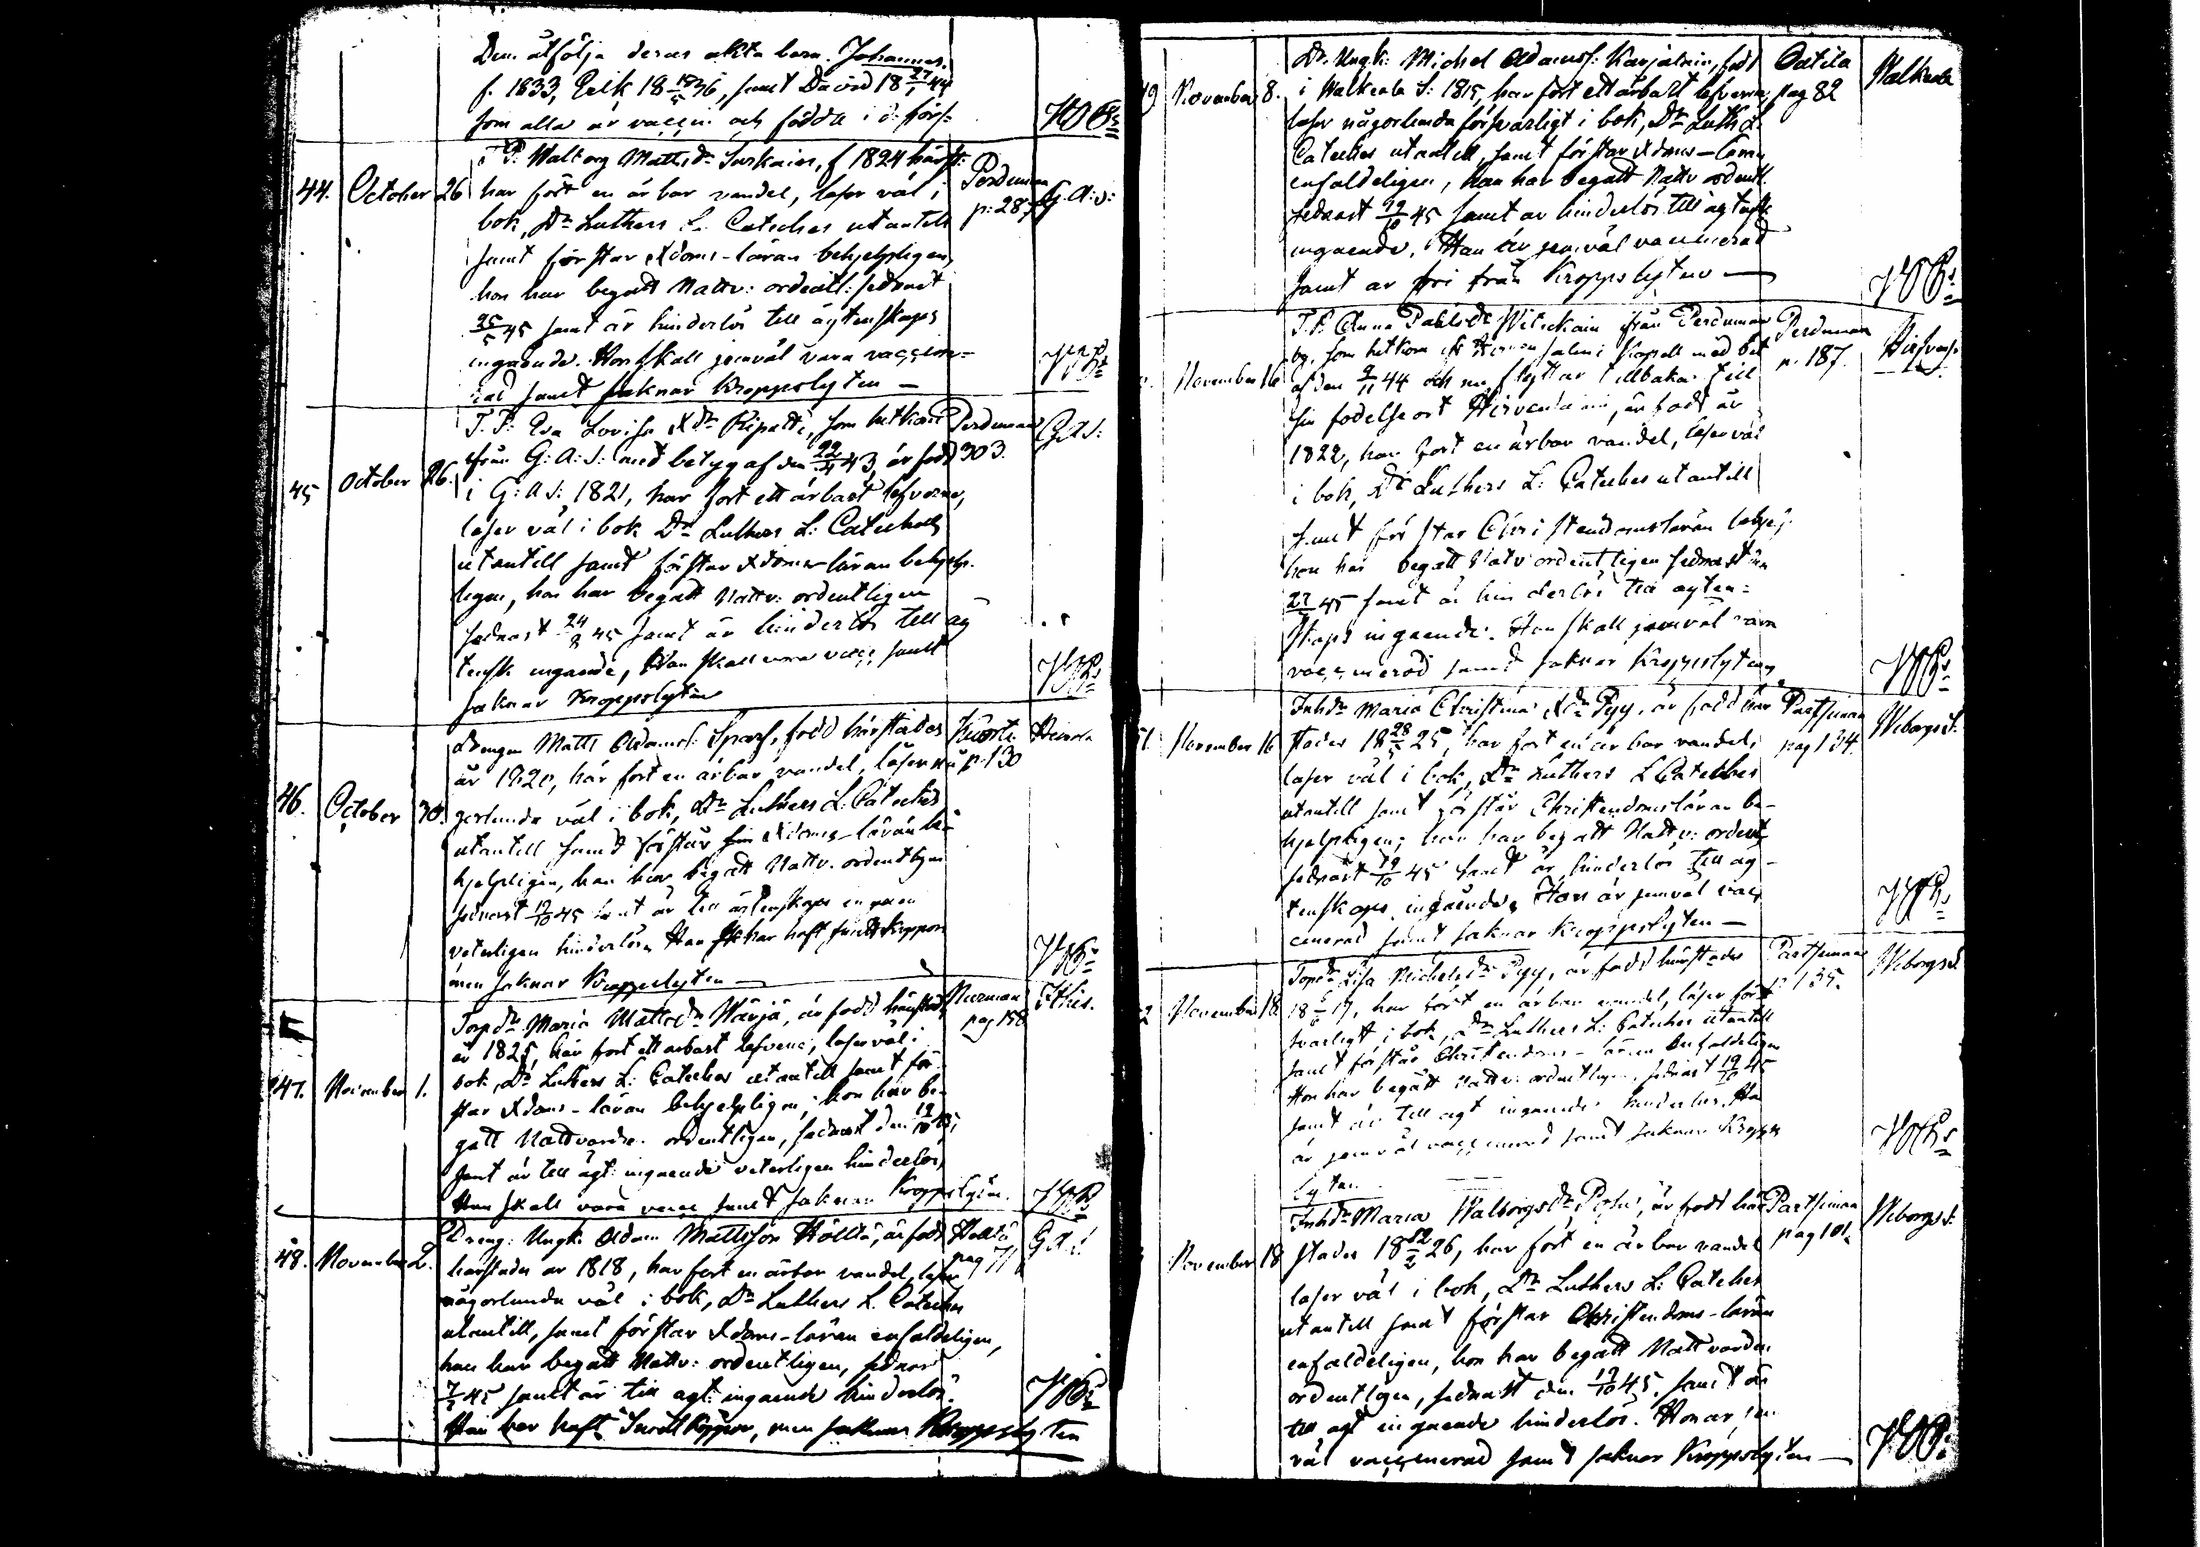 Dem åtfölja deras äkta barn. Johannes.
f. 1833, Erik 18 18/5 36, samt David 18 27/1 44
som alla är vaccin. och födde i d. förs:
44. October 26 T. P. Walborg Matts dr Suskain, f 1824 härst: Perdumaa p: 287 G. A: S:
har fört en ärbar vandel, läser väl i
bok, Dr Luthers L. Cateches utantill
samt förstår Xdoms-läran behjelpligen,
hon har begått Nattv: ordentl: sednast
25/5 45 samt är hinderlös till ägtenskaps
ingående. Hon skall jemväl vara vaccine-
rad samt saknar kroppslyten —
45 October 26. T. P: Eva Lovisa Xdr Ripatti, som hitkom Perdumaa 303. G. A. S:
från G: A: S: med betyg af den 22/11 43, är född
i G: A S: 1821, har fört ett ärbart lefverne,
läser väl i bok Dr Luthers L: Cateches
utantill samt förstår Xdoms-läran behjelp-
ligen, hon har begått Nattv: ordentligen
sednast 24/8 45 samt är hinderlös till äg
tensk. ingående, Hon skall vara vacc: samt
saknar kroppslyten
46. October 30. drengen Matts Adams: Sparf, född härstädes Kuorti p 130 Heinola
år 1820, har fört en ärbar vandel, läser nå
gorlunda väl i bok, Dr Luthers L: Cateches
utantill samt förstår sin Xdoms-läran be-
hjelpligen, han har begått Nattv. ordentligen
sednast 19/10 45 samt är till ägtenskaps ingåen
veterligen hinderlös. Han har haft smittkoppor
men saknar kroppslyten —
47. November 1. Torp dr Maria Matts dr Härjä, är född härstädes Nurmaa pag 158 Itthis.
år 1825, har fört ett ärbart lefverne, läser väl i
bok, Dr Luthers L: Cateches utantill samt för
står Xdoms-läran behjelpligen, hon har be-
gått Nattvarden ordentligen, sednast den 19/10 45,
samt är till ägt: ingående veterligen hinderlös,
Hon skall vara vacc samt saknar Kroppslyten.
48. November 2. Dreng: Ungk. Adam Mattsson Hölltä, är född pag 71 G A S
härstädes år 1818, har fört en ärbar vandel, läser
någorlunda väl i bok, Dr Luthers L. Cateches
utantill, samt förstår Xdoms-läran enfaldeligen,
han har begått Nattv: ordentligen, sednast
45 samt är till ägt: ingående hinderlös.
Han har haft Smittkoppor, men saknar Kroppslyten
November 8. Dr. Ungk: Michel Adamss: Karjalain, född Oatila pag 82 Walkeala
i Walkeala S: 1815, har fört ett ärbart lefverne,
läser någorlunda försvarligt i bok, Dr Luth L.
Cateches utantill, samt förstår Xdoms-läran
enfaldeligen, han har begått Nattv ordentl.
sednast 19/10 45 samt är hinderlös till ägtensk.
ingående. Han är jemväl vaccinerad
samt är fri från Kroppslyten —
November 16 T. P. Anna Pahls dr Witickain från Perdumaa Perdumaa p. 187. Hirfvens.
by, som hitkom från Hirvensalmi Kapell med bet
af den 9/11 44 och nu flyttar tillbaka till
sin födelseort Hirvensalmi, är född år
1822, har fört en ärbar vandel, läser väl
i bok, Dr Luthers L: Cateches utantill
samt förstår Christendomsläran behj:
hon har begått Nattv ordentligen sednast
45 samt är hinderlös till ägten-
skaps ingående. Hon skall jemväl vara
vaccinerad samt saknar kroppslyten
November 16 Inhdr Maria Christina Xdr Pyy, är född här Partsimaa pag 134. Wiborgs S.
städes 18 28/5 25, har fört en ärbar vandel,
läser väl i bok, Dr Luthers L Cateches
utantill samt förstår Christendomsläran be-
hjelpligen; hon har begått Nattv: ordent
sednast 19/10 45 samt är hinderlös till äg-
tenskaps ingående. Hon är jemväl vac
cinerad samt saknar kroppslyten —
November 18 Torpdr Lisa Michels dr Pyy, är född härstädes Partsimaa p 135. Wiborgs S.
18 19, har fört en ärbar vandel, läser för
svarligt i bok, Dr Luthers L: Cateches utantill
samt förstår Christendoms-läran enfaldeligen
Hon har begått Nattv: ordentligen, sednast 19/10 45
samt är till ägt ingående hinderlös. Hon
är jemväl vaccinerad samt saknar Kropps
lyten
November 18 Inhdr Maria Walborgs dr, är född här Partsimaa pag 101. Wiborgs S:
städes 18 26, har fört en ärbar vandel
läser väl i bok, Dr Luthers L: Cateches
utantill samt förstår Christendoms-läran
enfaldeligen, hon har begått Nattvarden
ordentligen, sednast den 19/10 45, samt är
till ägt ingående hinderlös. Hon är jem
väl vaccinerad samt saknar Kroppslyten —